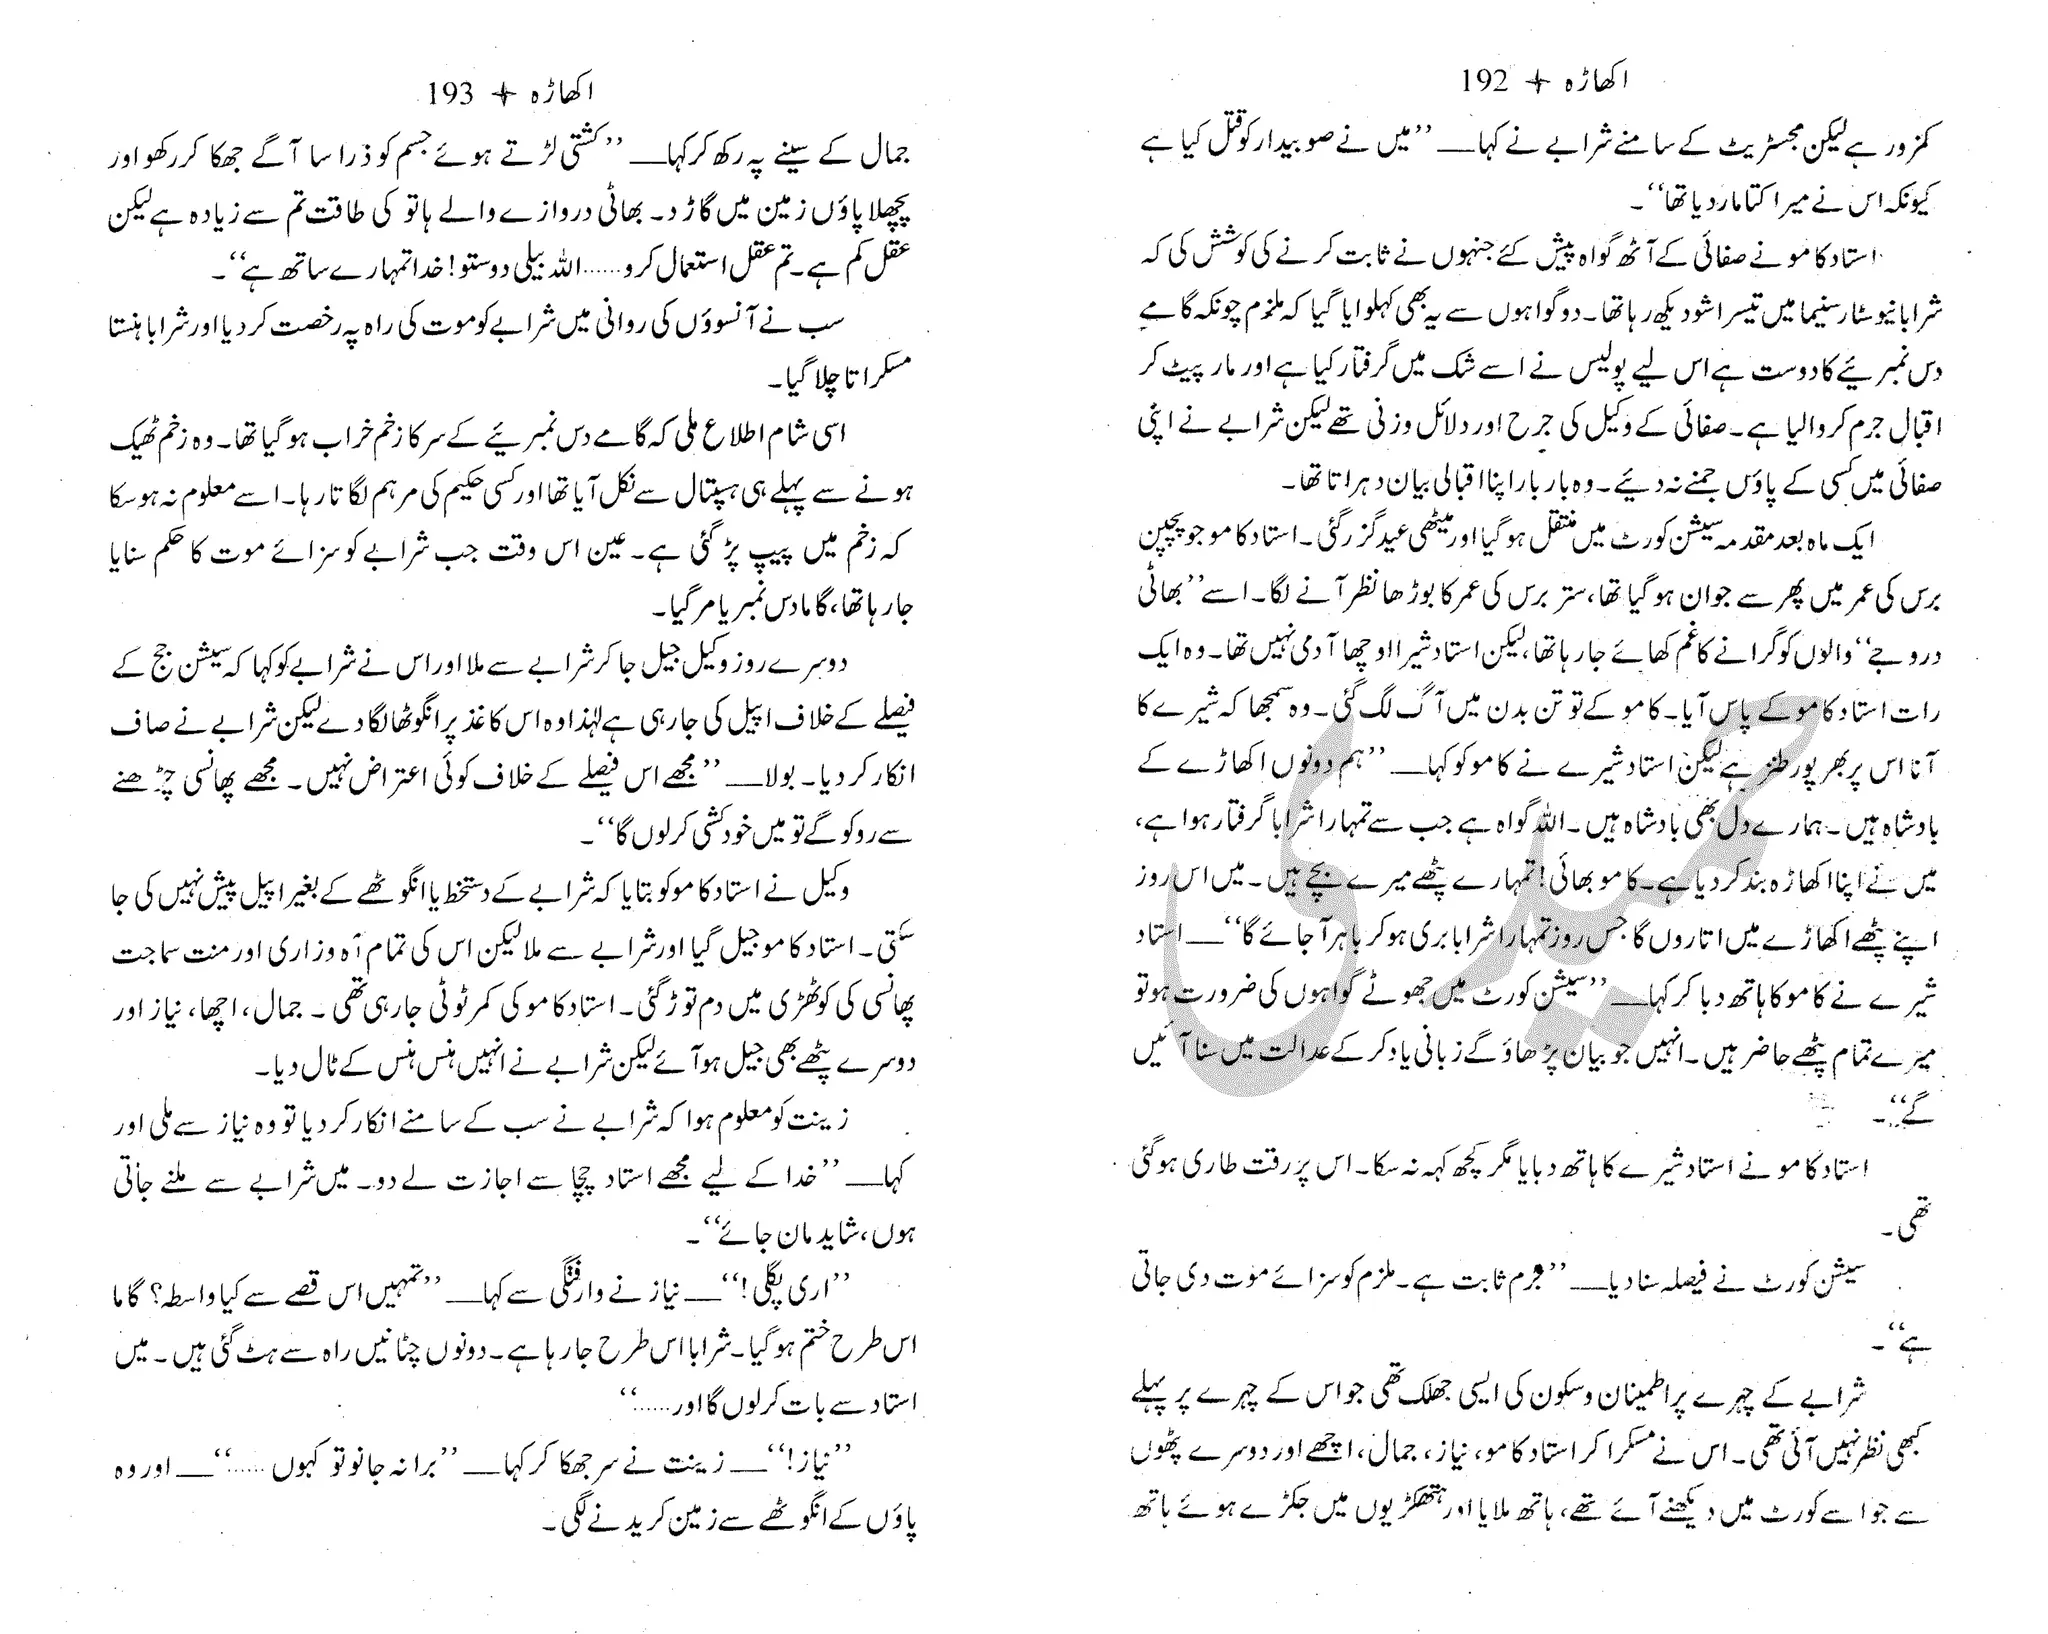 اکھاڑہ + 192
کمزور ہے لیکن مجسٹریٹ کے سامنے شرابے نے کہا__ ’’میں نے صوبیدار کو قتل کیا ہے
کیونکہ اس نے میرا کتا مار دیا تھا‘‘۔
استاد کامو نے صفائی کے آٹھ گواہ پیش کئے جنہوں نے ثابت کرنے کی کوشش کی کہ
شرابا نیو سٹار سنیما میں تیسرا شو دیکھ رہا تھا۔ دو گواہوں سے یہ بھی کہلوایا گیا کہ ملزم چونکہ گامے
دس نمبریئے کا دوست ہے اس لیے پولیس نے اسے شک میں گرفتار کیا ہے اور مار پیٹ کر
اقبال جرم کروا لیا ہے۔ صفائی کے وکیل کی جرح اور دلائل وزنی تھے لیکن شرابے نے اپنی
صفائی میں کسی کے پاؤں جمنے نہ دیئے۔ وہ بار بار اپنا اقبالی بیان دہراتا تھا۔
ایک ماہ بعد مقدمہ سیشن کورٹ میں منتقل ہو گیا اور میٹھی عید گزر گئی۔ استاد کامو جو پچپن
برس کی عمر میں پھر سے جوان ہو گیا تھا، ستر برس کی عمر کا بوڑھا نظر آنے لگا۔ اسے ’’بھاٹی
دروجے‘‘ والوں کو گرانے کا غم کھائے جا رہا تھا، لیکن استاد شیرا اوچھا آدمی نہیں تھا۔ وہ ایک
رات استاد کامو کے پاس آیا۔ کامو کے تو تن بدن میں آگ لگ گئی۔ وہ سمجھا کہ شیرے کا
آنا اس پر بھرپور طنز ہے لیکن استاد شیرے نے کامو کو کہا__ ’’ہم دونوں اکھاڑے کے
بادشاہ ہیں۔ ہمارے دل بھی بادشاہ ہیں۔ اللہ گواہ ہے جب سے تمہارا شرابا گرفتار ہوا ہے،
میں نے اپنا اکھاڑہ بند کر دیا ہے۔ کامو بھائی! تمہارے پٹھے میرے بچے ہیں۔ میں اس روز
اپنے پٹھے اکھاڑے میں اتاروں گا جس روز تمہارا شرابا بری ہو کر باہر آ جائے گا‘‘__ استاد
شیرے نے کامو کا ہاتھ دبا کر کہا__ ’’سیشن کورٹ میں جھوٹے گواہوں کی ضرورت ہو تو
میرے تمام پٹھے حاضر ہیں۔ انہیں جو بیان پڑھاؤ گے زبانی یاد کر کے عدالت میں سنا آئیں
گے‘‘۔
استاد کامو نے استاد شیرے کا ہاتھ دبایا مگر کچھ کہہ نہ سکا۔ اس پر رقت طاری ہو گئی
تھی۔
سیشن کورٹ نے فیصلہ سنا دیا__ ’’جرم ثابت ہے۔ ملزم کو سزائے موت دی جاتی
ہے‘‘۔
شرابے کے چہرے پر اطمینان و سکون کی ایسی جھلک تھی جو اس کے چہرے پر پہلے
کبھی نظر نہیں آئی تھی۔ اس نے مسکرا کر استاد کامو، نیاز، جمال، اچھے اور دوسرے پٹھوں
سے جو اسے کورٹ میں دیکھنے آئے تھے، ہاتھ ملایا اور ہتھکڑیوں میں جکڑے ہوئے ہاتھ
اکھاڑہ + 193
جمال کے سینے پہ رکھ کر کہا__ ’’کشتی لڑتے ہوئے جسم کو ذرا سا آگے جھکا کر رکھو اور
پچھلا پاؤں زمین میں گاڑ دو۔ بھاٹی دروازے والے ہاتو کی طاقت تم سے زیادہ ہے لیکن
عقل کم ہے۔ تم عقل استعمال کرو...... اللہ بیلی دوستو! خدا تمہارے ساتھ ہے‘‘۔
سب نے آنسوؤں کی روانی میں شرابے کو موت کی راہ پہ رخصت کر دیا اور شرابا ہنستا
مسکراتا چلا گیا۔
اسی شام اطلاع ملی کہ گامے دس نمبریئے کے سر کا زخم خراب ہو گیا تھا۔ وہ زخم ٹھیک
ہونے سے پہلے ہی ہسپتال سے نکل آیا تھا اور کسی حکیم کی مرہم لگاتا رہا۔ اسے معلوم نہ ہو سکا
کہ زخم میں پیپ پڑ گئی ہے۔ عین اس وقت جب شرابے کو سزائے موت کا حکم سنایا
جا رہا تھا، گاما دس نمبریا مر گیا۔
دوسرے روز وکیل جیل جا کر شرابے سے ملا اور اس نے شرابے کو کہا کہ سیشن جج کے
فیصلے کے خلاف اپیل کی جا رہی ہے لہٰذا وہ اس کاغذ پر انگوٹھا لگا دے لیکن شرابے نے صاف
انکار کر دیا۔ بولا__ ’’مجھے اس فیصلے کے خلاف کوئی اعتراض نہیں۔ مجھے پھانسی چڑھنے
سے روکو گے تو میں خودکشی کر لوں گا‘‘۔
وکیل نے استاد کامو کو بتایا کہ شرابے کے دستخط یا انگوٹھے کے بغیر اپیل پیش نہیں کی جا
سکتی۔ استاد کامو جیل گیا اور شرابے سے ملا لیکن اس کی تمام آہ و زاری اور منت سماجت
پھانسی کی کوٹھڑی میں دم توڑ گئی۔ استاد کامو کی کمر ٹوٹی جا رہی تھی۔ جمال، اچھا، نیاز اور
دوسرے پٹھے بھی جیل ہو آئے لیکن شرابے نے انہیں ہنس ہنس کے ٹال دیا۔
زینت کو معلوم ہوا کہ شرابے نے سب کے سامنے انکار کر دیا تو وہ نیاز سے ملی اور
کہا__ ’’خدا کے لیے مجھے استاد چچا سے اجازت لے دو۔ میں شرابے سے ملنے جاتی
ہوں، شاید مان جائے‘‘۔
’’اری پگلی!‘‘__ نیاز نے وارفتگی سے کہا__ ’’تمہیں اس قصے سے کیا واسطہ؟ گاما
اس طرح ختم ہو گیا۔ شرابا اس طرح جا رہا ہے۔ دونوں چٹانیں راہ سے ہٹ گئی ہیں۔ میں
استاد سے بات کر لوں گا اور......‘‘
’’نیاز!‘‘__ زینت نے سر جھکا کر کہا__ ’’برا نہ جانو تو کہوں......‘‘__ اور وہ
پاؤں کے انگوٹھے سے زمین کریدنے لگی۔